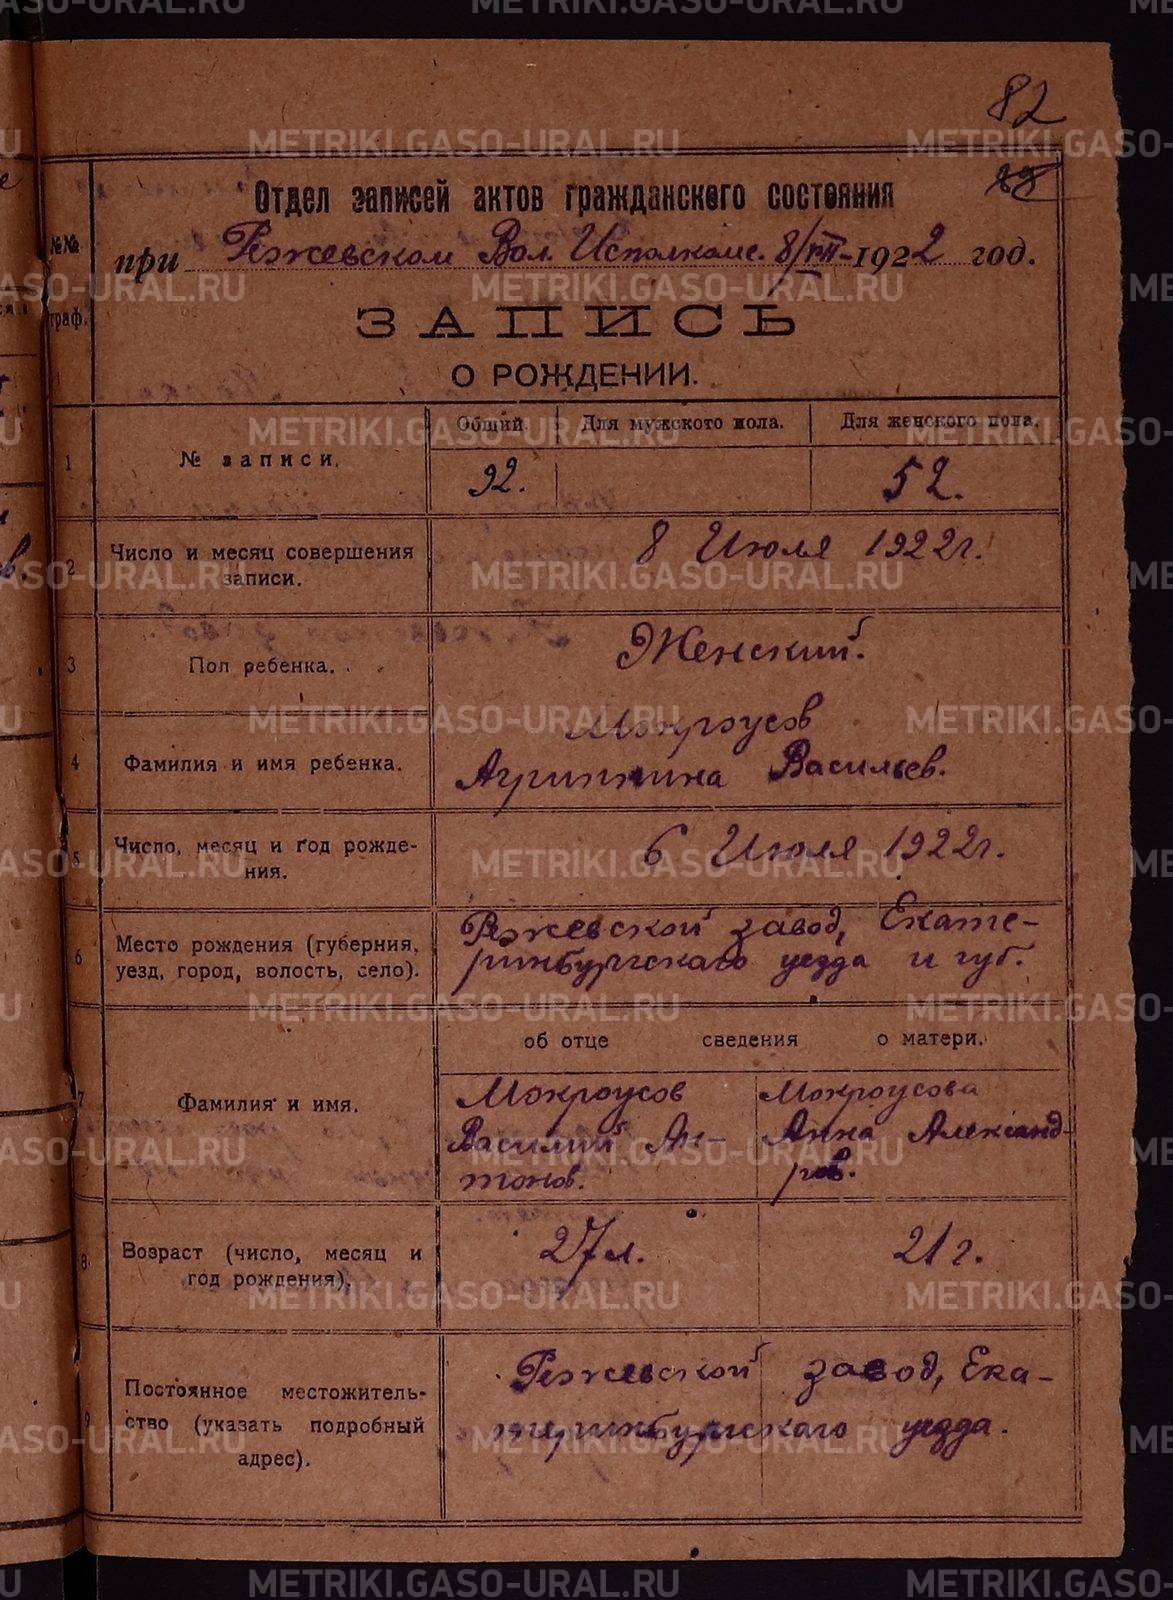 82
88
Отдел записей актов гражданского состояния
при Режевском Вол. Исполкоме. 8/VII-1922 год.
№№
граф.
ЗАПИСЬ
О РОЖДЕНИИ.
Общий. Для мужского пола. Для женского пола.
1 № записи. 92. 52.
2 Число и месяц совершения
записи.
8 Июля 1922г.
3 Пол ребенка. Женский.
4 Фамилия и имя ребенка.
Мокроусов
Агрипина Васильев.
5 Число, месяц и год рожде-
ния.
6 Июля 1922г.
6 Место рождения (губерния,
уезд, город, волость, село).
Режевской завод, Екате-
ринбургскаго уезда и губ.
об отце сведения о матери.
7 Фамилия и имя.
Мокроусов
Василий Ан-
тонов.
Мокроусова
Анна Александ-
ров.
8. Возраст (число, месяц и
год рождения).
27 л. 21 г.
9 Постоянное местожитель-
ство (указать подробный
адрес).
Режевской завод, Ека-
теринбургскаго уезда.
METRIKI.GASO-URAL.RU